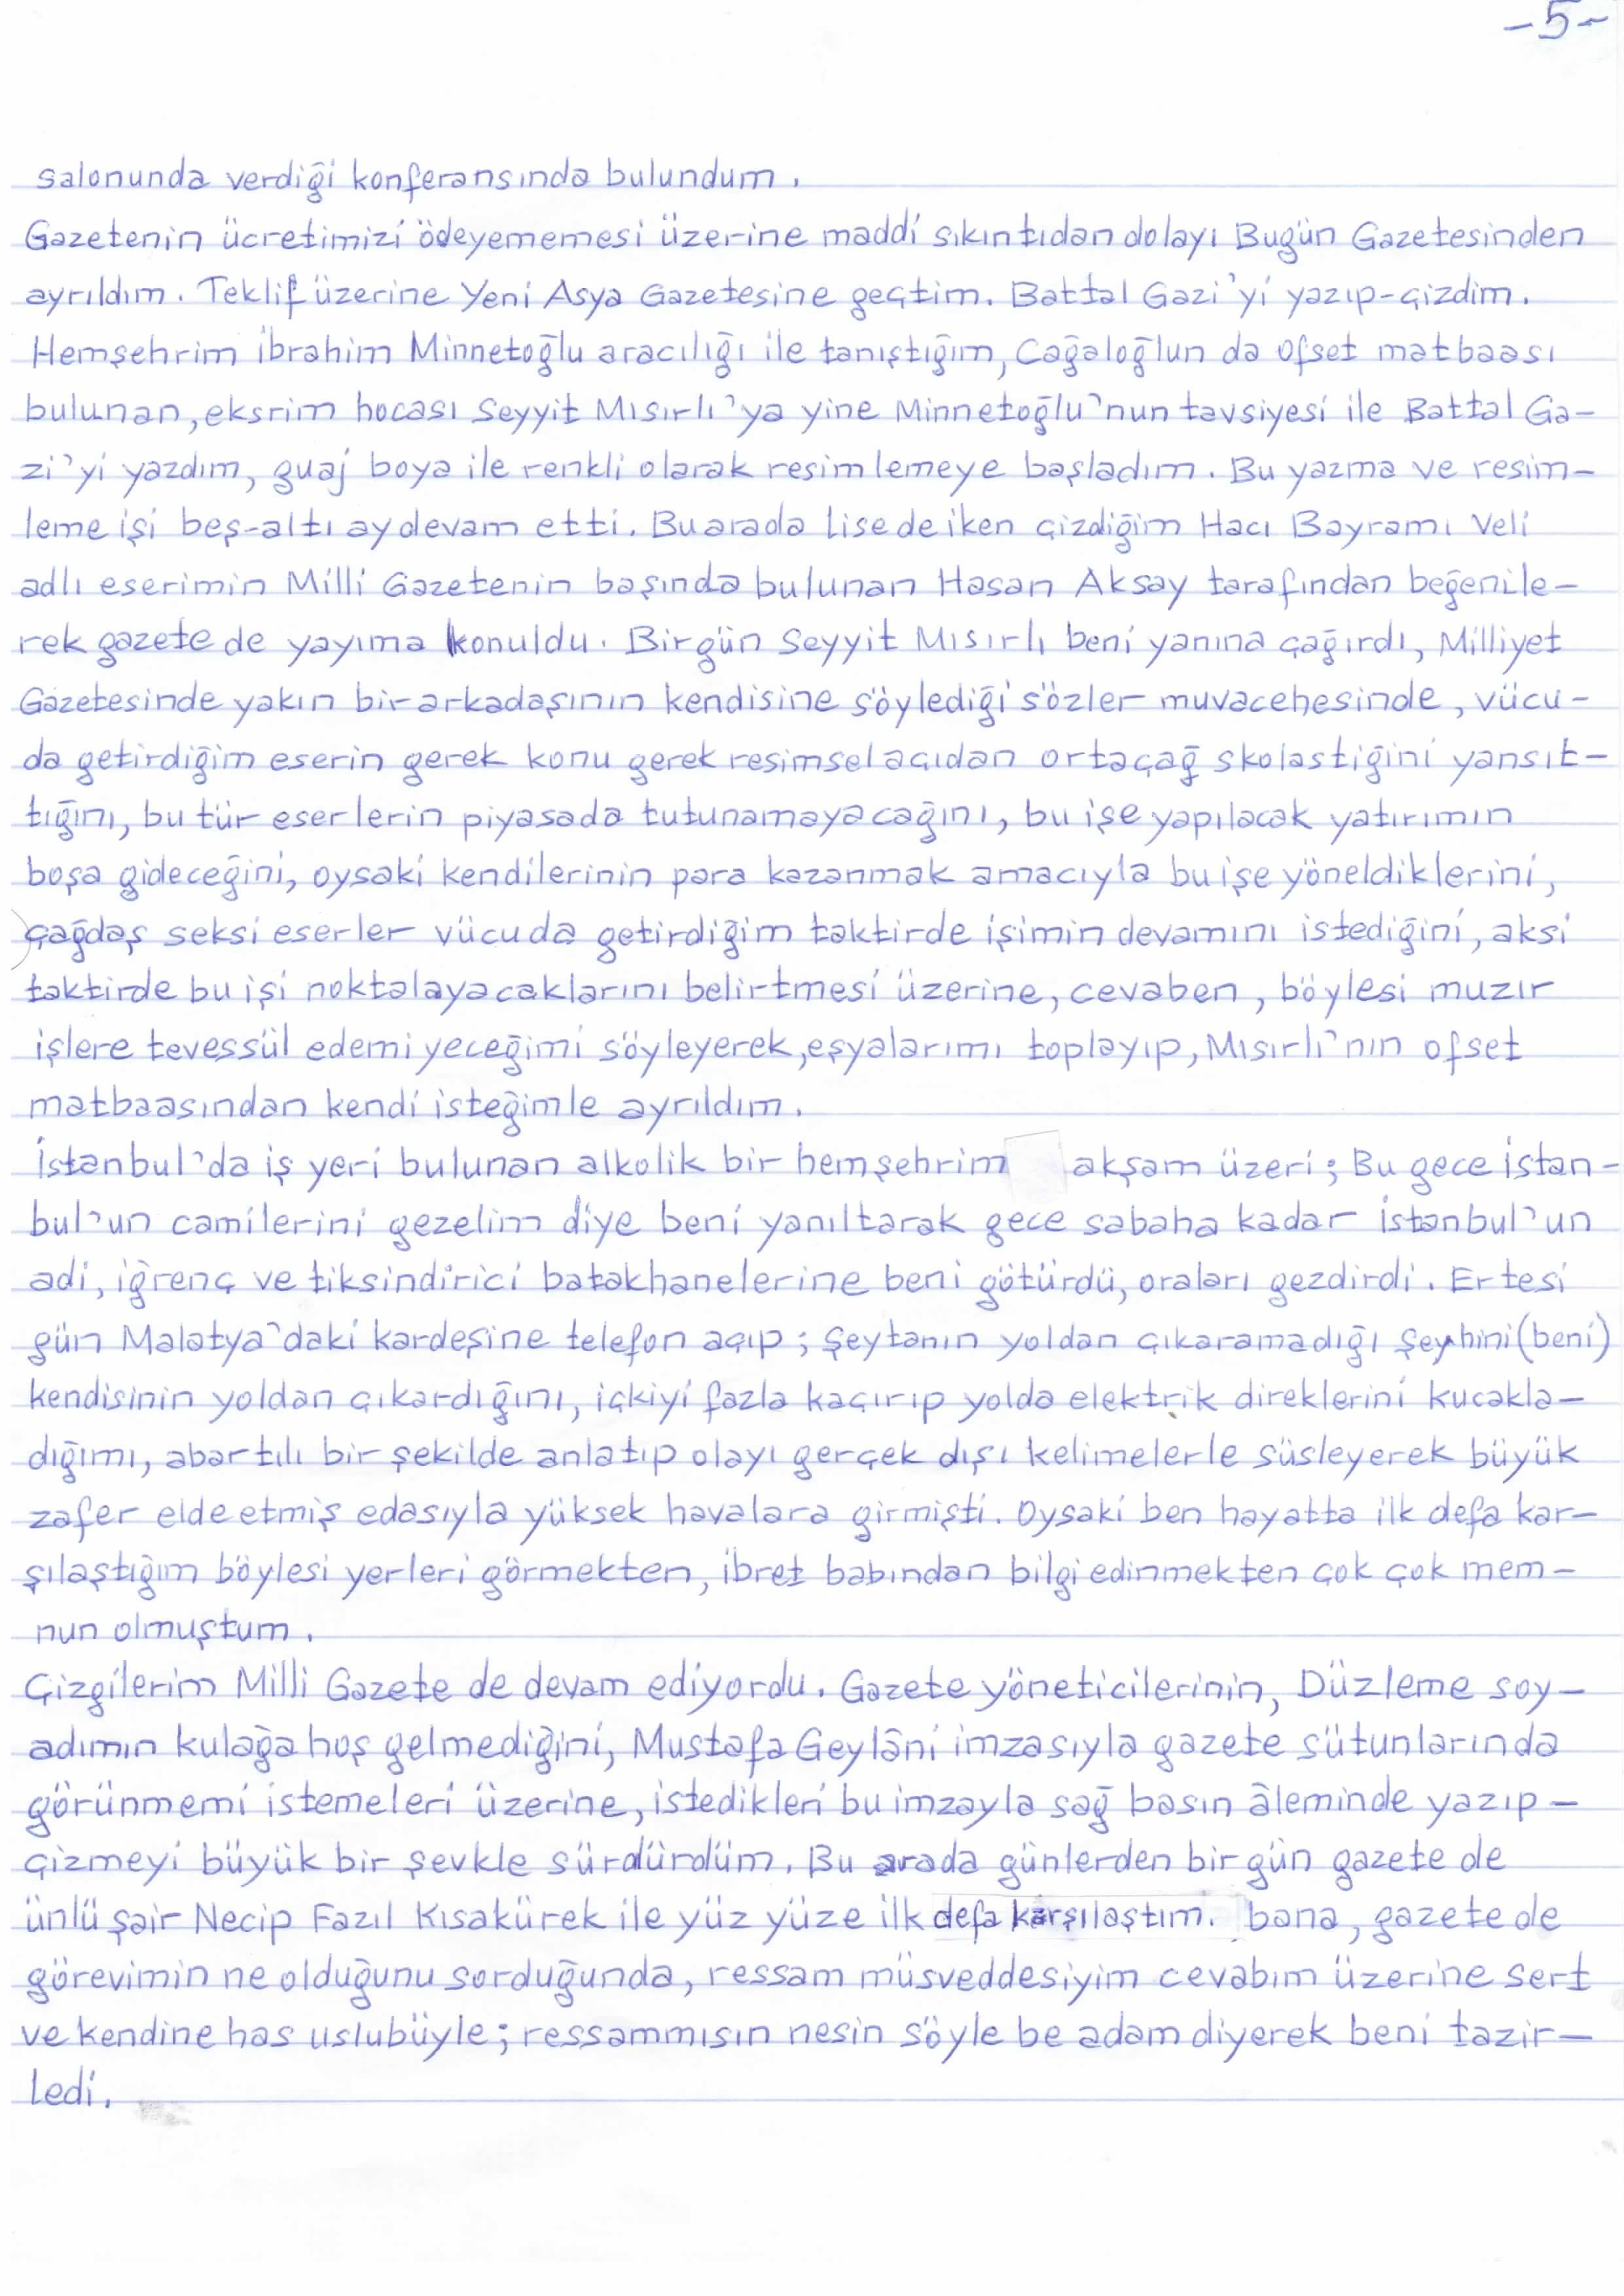 -5-
salonunda verdiği konferansında bulundum.
Gazetenin ücretimizi ödeyememesi üzerine maddi sıkıntıdan dolayı Bugün Gazetesinden
ayrıldım. Teklif üzerine Yeni Asya Gazetesine geçtim. Battal Gazi'yi yazıp-çizdim.
Hemşehrim İbrahim Minnetoğlu aracılığı ile tanıştığım, Cağaloğlun da ofset matbaası
bulunan, eksrim hocası Seyyit Mısırlı'ya yine Minnetoğlu'nun tavsiyesi ile Battal Ga-
zi'yi yazdım, guaj boya ile renkli olarak resimlemeye başladım. Bu yazma ve resim-
leme işi beş-altı ay devam etti. Bu arada lise de iken çizdiğim Hacı Bayramı Veli
adlı eserimin Milli Gazetenin başında bulunan Hasan Aksay tarafından beğenile-
rek gazete de yayıma konuldu. Birgün Seyyit Mısırlı beni yanına çağırdı, Milliyet
Gazetesinde yakın bir arkadaşının kendisine söylediği sözler muvacehesinde, vücu-
da getirdiğim eserin gerek konu gerek resimsel açıdan ortaçağ skolastiğini yansıt-
tığını, bu tür eserlerin piyasada tutunamayacağını, bu işe yapılacak yatırımın
boşa gideceğini, oysaki kendilerinin para kazanmak amacıyla bu işe yöneldiklerini,
çağdaş seksi eserler vücuda getirdiğim taktirde işimin devamını istediğini, aksi
taktirde bu işi noktalayacaklarını belirtmesi üzerine, cevaben, böylesi muzır
işlere tevessül edemiyeceğimi söyleyerek, eşyalarımı toplayıp, Mısırlı'nın ofset
matbaasından kendi isteğimle ayrıldım.
İstanbul'da iş yeri bulunan alkolik bir hemşehrim akşam üzeri; Bu gece İstan-
bul'un camilerini gezelim diye beni yanıltarak gece sabaha kadar İstanbul'un
adi, iğrenç ve tiksindirici batakhanelerine beni götürdü, oraları gezdirdi. Ertesi
gün Malatya'daki kardeşine telefon açıp; Şeytanın yoldan çıkaramadığı Şeyhini (beni)
kendisinin yoldan çıkardığını, içkiyi fazla kaçırıp yolda elektrik direklerini kucakla-
dığımı, abartılı bir şekilde anlatıp olayı gerçek dışı kelimelerle süsleyerek büyük
zafer elde etmiş edasıyla yüksek havalara girmişti. Oysaki ben hayatta ilk defa kar-
şılaştığım böylesi yerleri görmekten, ibret babından bilgi edinmekten çok çok mem-
nun olmuştum.
Çizgilerim Milli Gazete de devam ediyordu. Gazete yöneticilerinin, Düzleme soy-
adımın kulağa hoş gelmediğini, Mustafa Geylâni imzasıyla gazete sütunlarında
görünmemi istemeleri üzerine, istedikleri bu imzayla sağ basın âleminde yazıp-
çizmeyi büyük bir şevkle sürdürdüm. Bu arada günlerden bir gün gazete de
ünlü şair Necip Fazıl Kısakürek ile yüz yüze ilk defa karşılaştım. bana, gazete de
görevimin ne olduğunu sorduğunda, ressam müsveddesiyim cevabım üzerine sert
ve kendine has uslubüyle; ressammısın nesin söyle be adam diyerek beni tazir-
ledi.